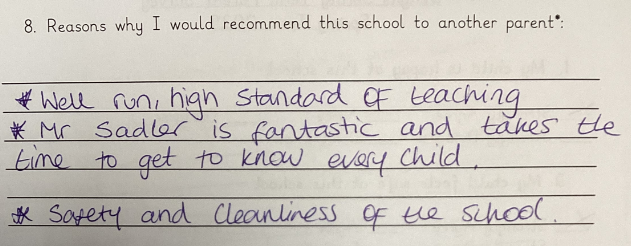 8. Reasons why I would recommend this school to another parent*:
* Well run, high standard of teaching
* Mr Sadler is fantastic and takes the
time to get to know every child.
* Safety and Cleanliness of the school.